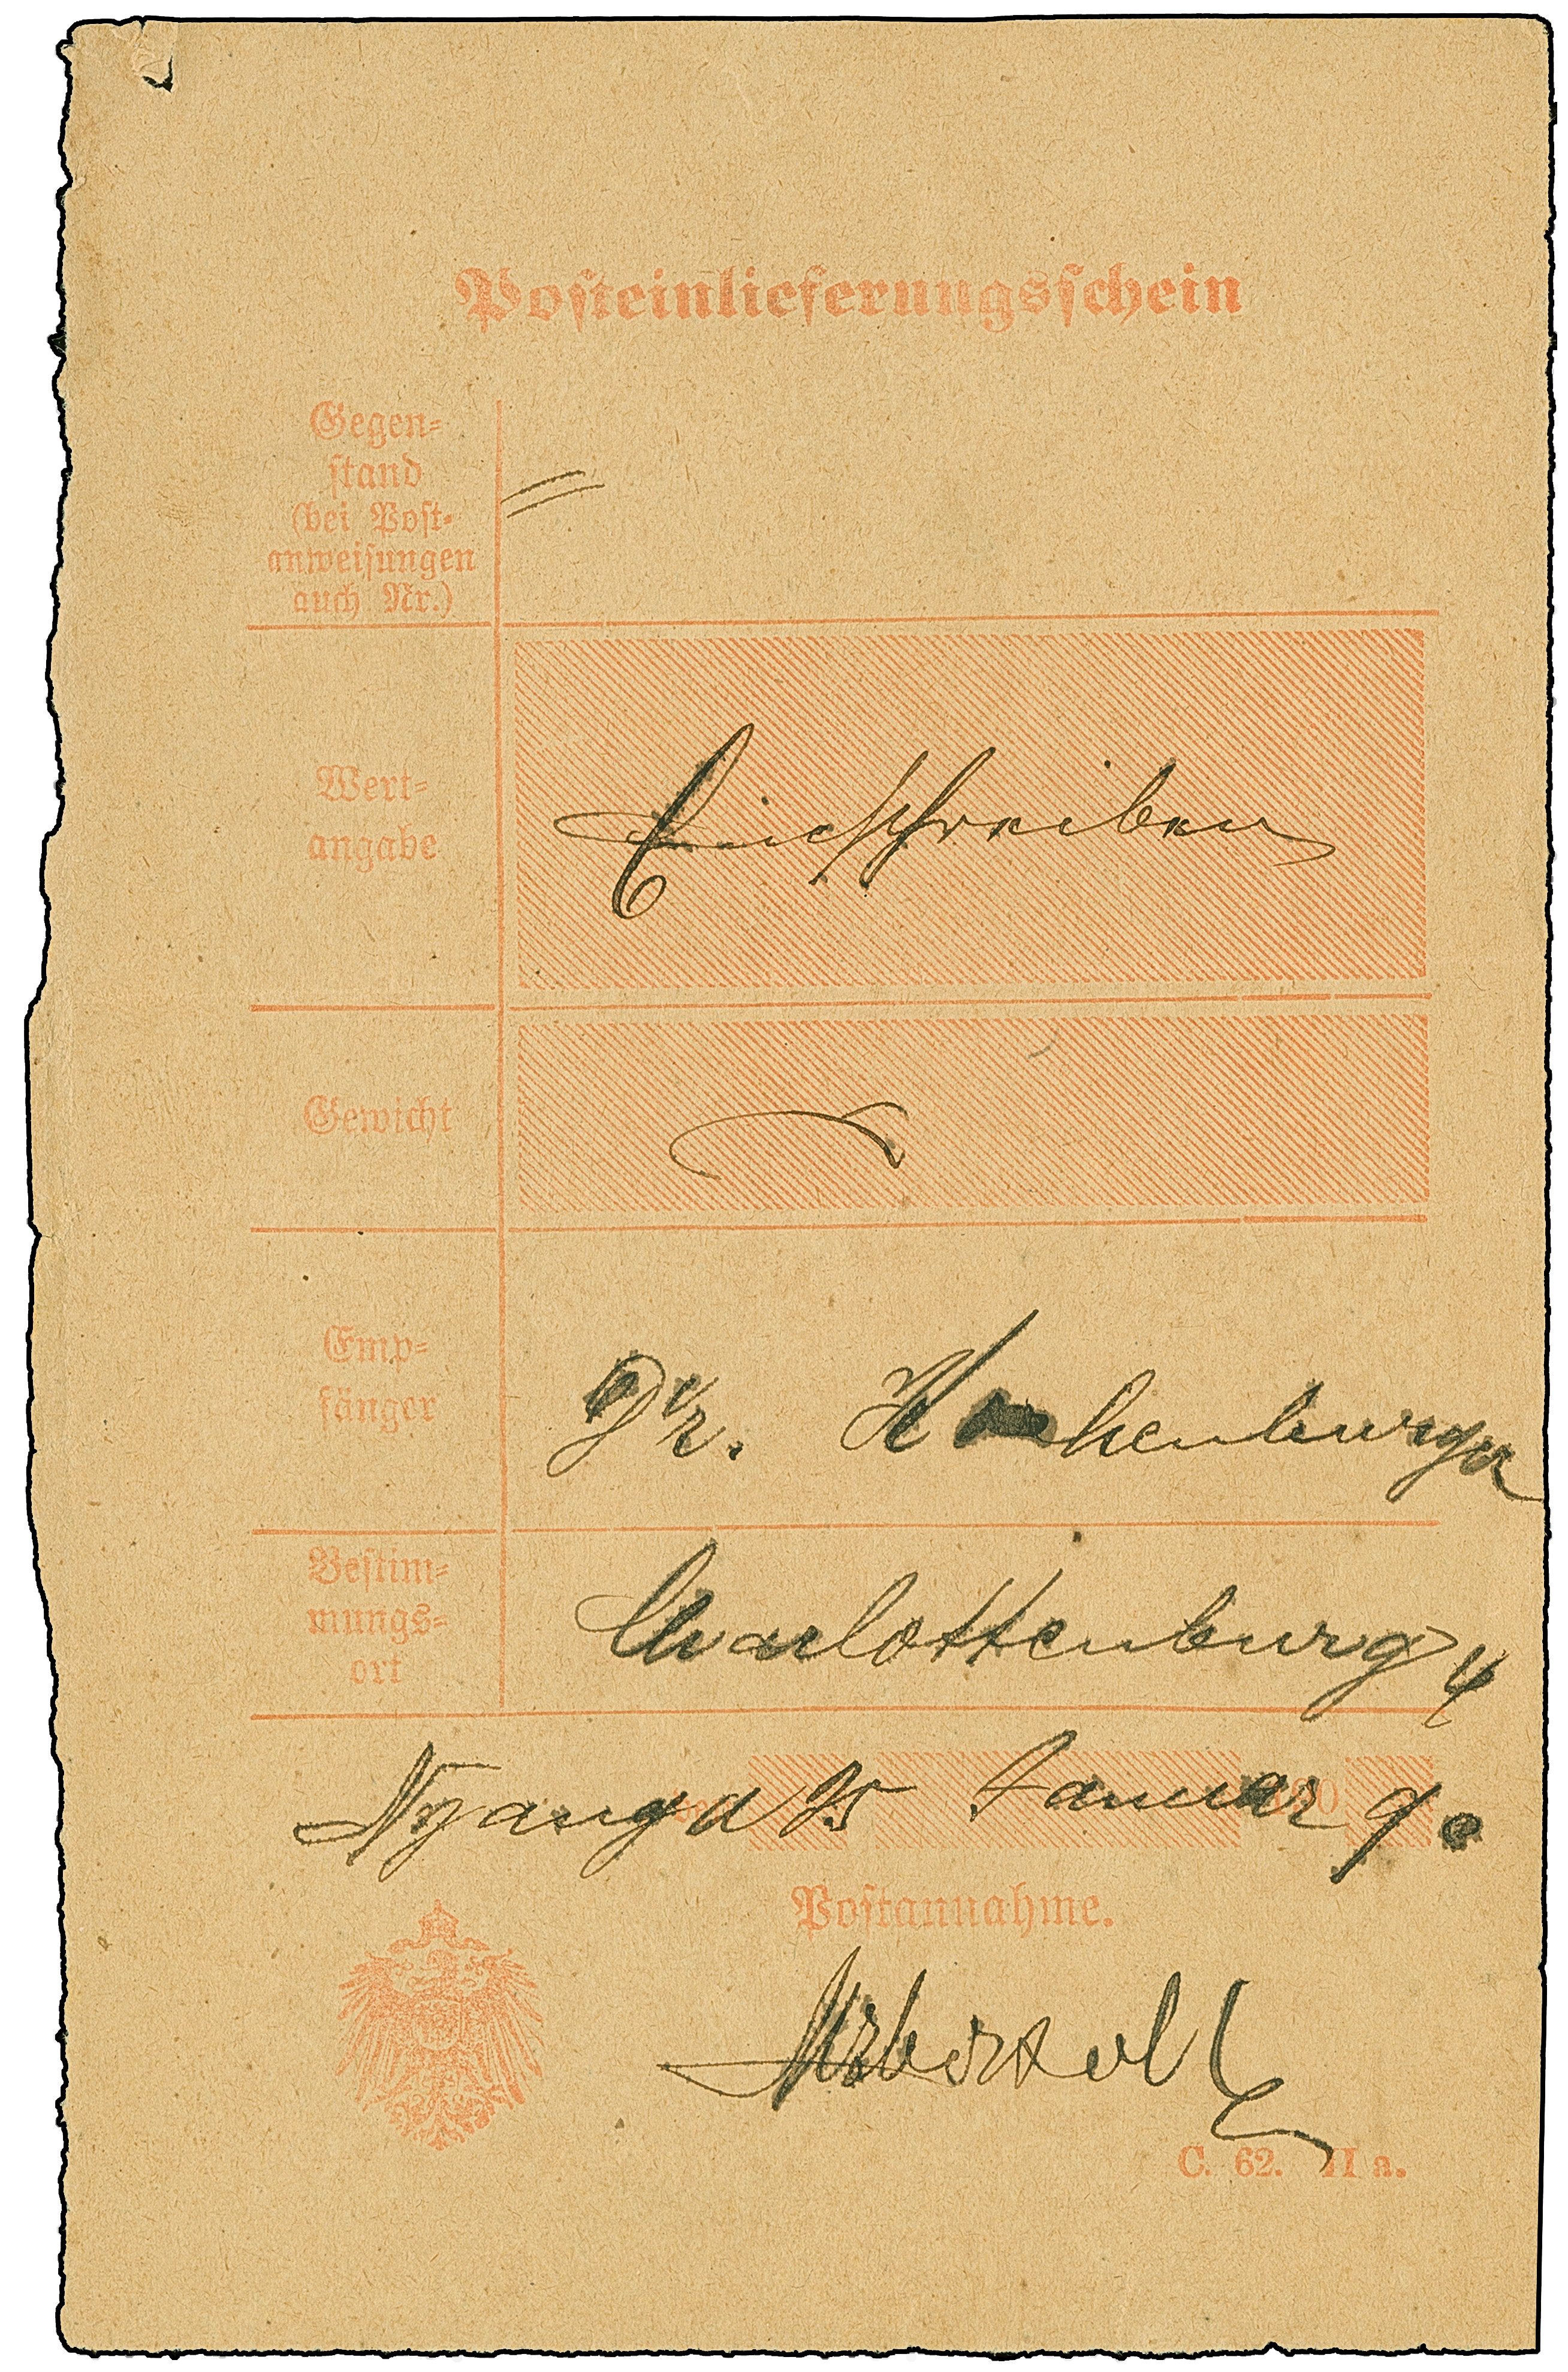 Posteinlieferungsschein
Gegen-
stand
(bei Post-
anweisungen
auch Nr.)
Wert-
angabe
Einschreiben
Gewicht
Emp-
fänger
Dr.
Bestim-
mungs-
ort
Charlottenburg 4
Januar
Postannahme.
C. 62. II a.